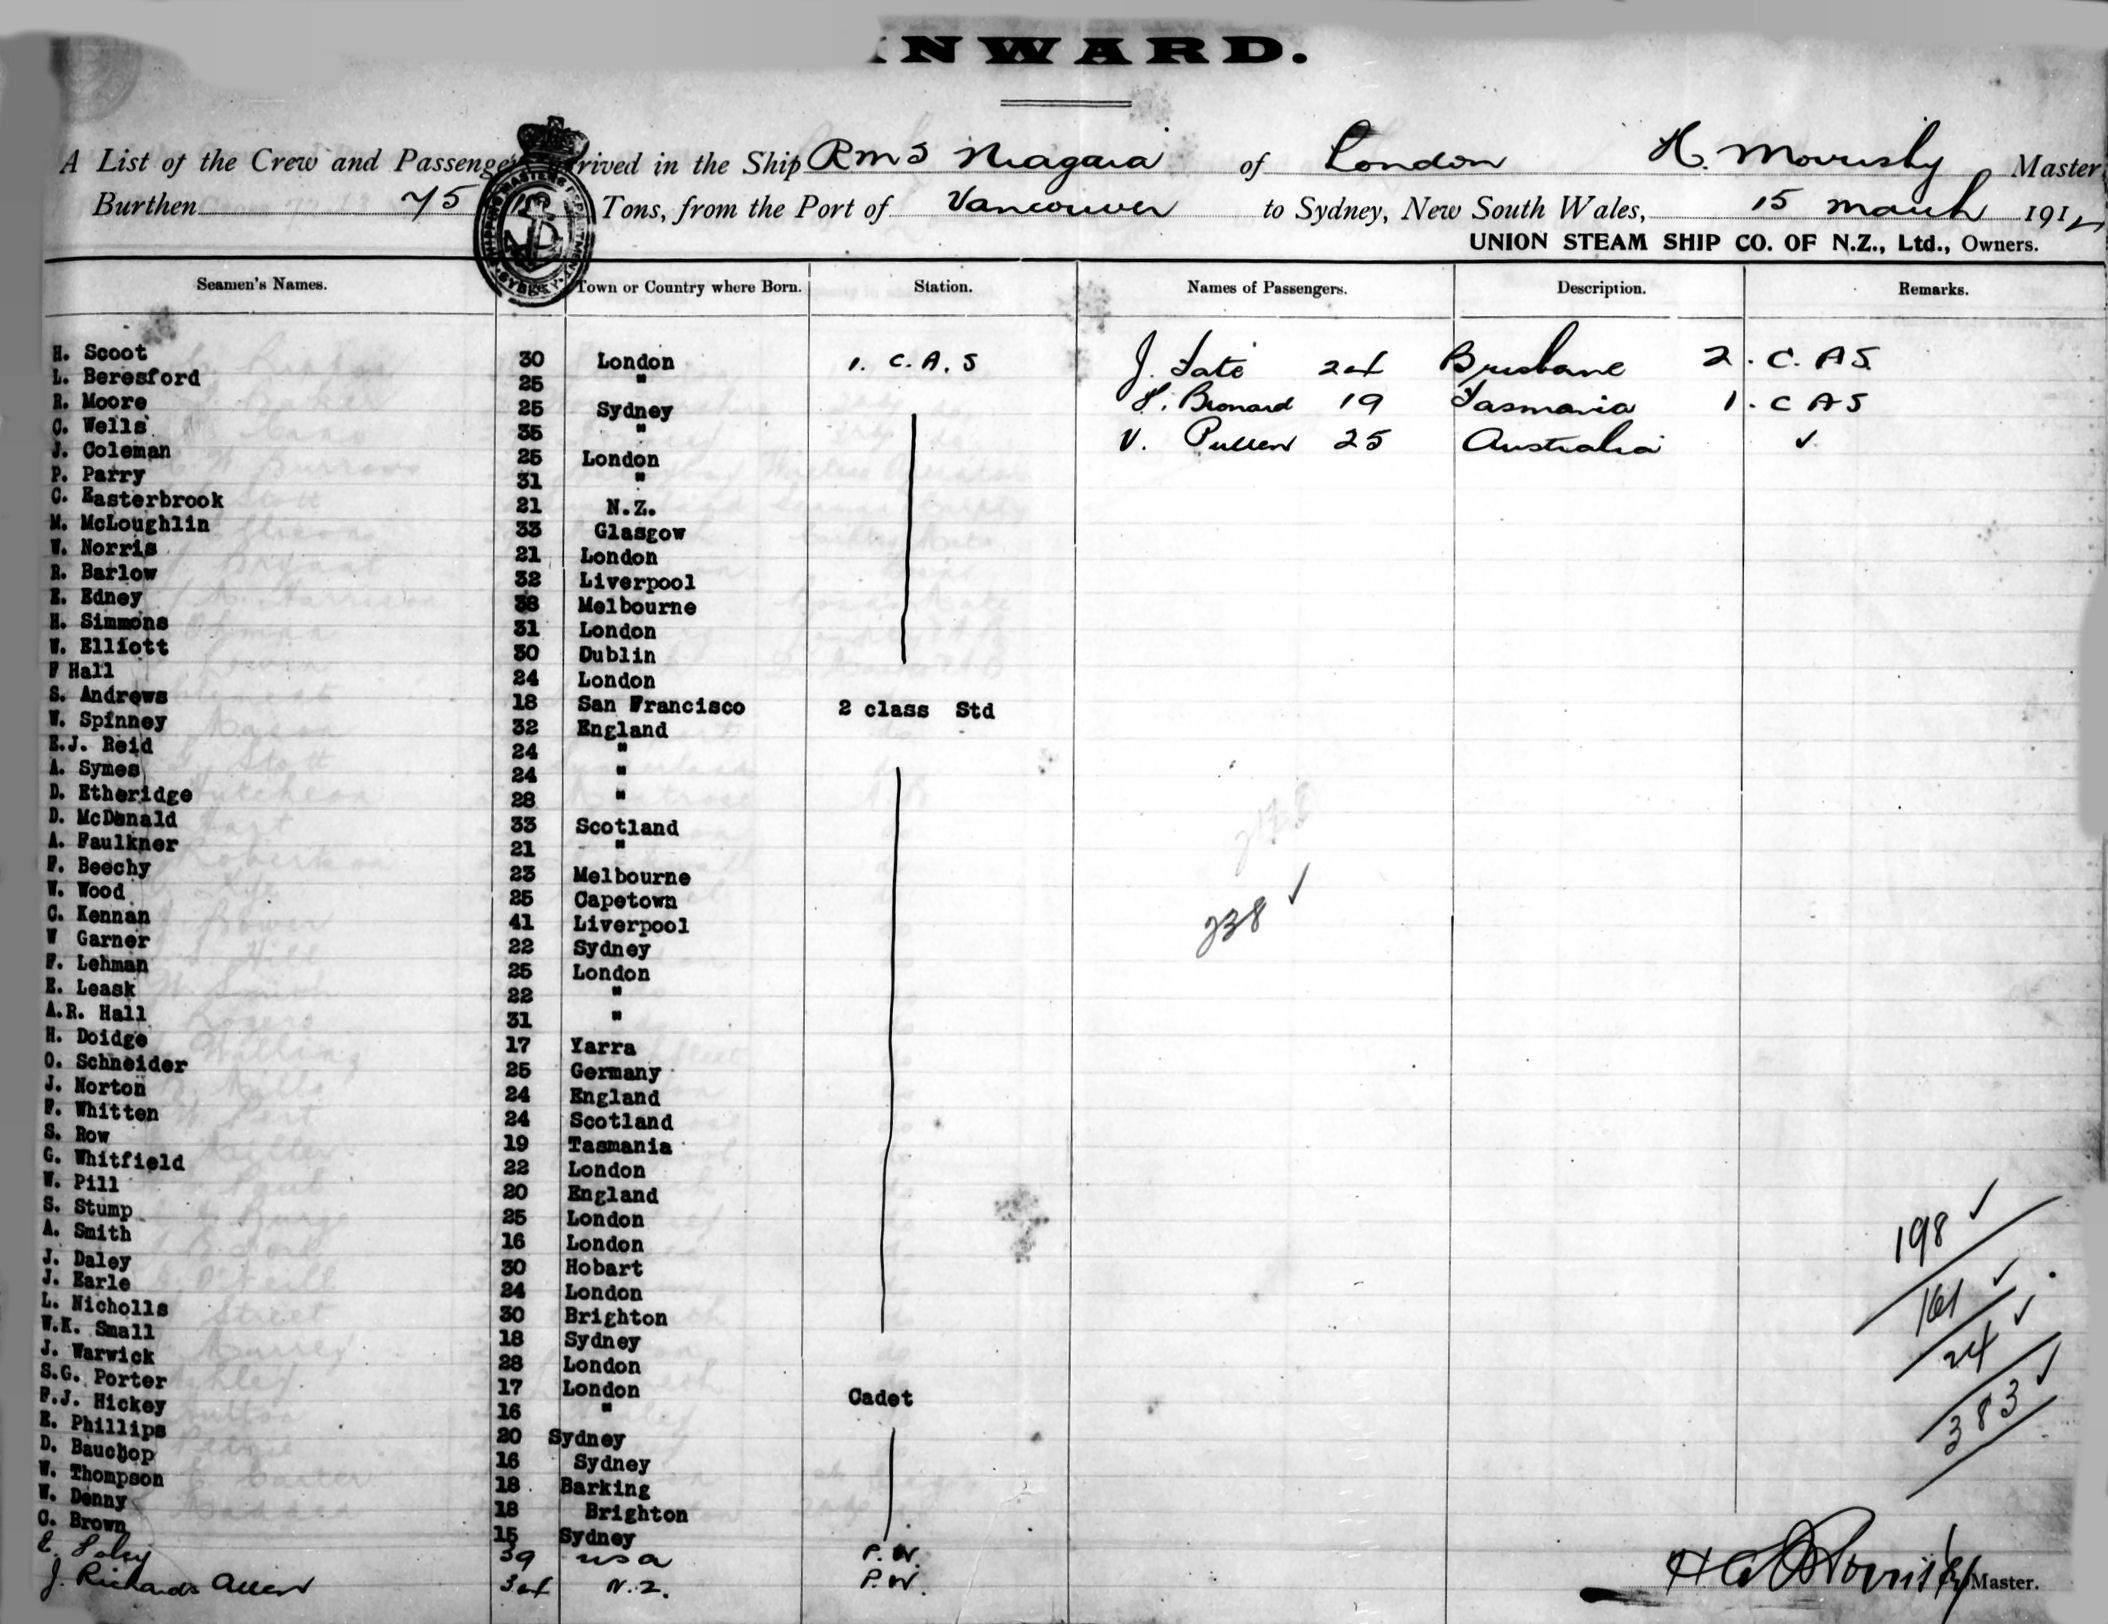 INWARD.
A List of the Crew and Passengers arrived in the Ship RMS Niagara of London H. Morrisby Master
Burthen 75 Tons, from the Port of Vancouver to Sydney, New South Wales, 15 March 191
UNION STEAM SHIP CO. OF N.Z., Ltd., Owners.
Seamen's Names. Town or Country where Born. Station. Names of Passengers. Description. Remarks.
H. Scoot 30 London 1. C.A.S J. Tate 24 Brisbane 2. C. A S.
L. Beresford 25 " 19 Tasmania 1. C A S
R. Moore 25 Sydney V. Pullen 25 Australia ✓
C. Wells 35 "
J. Coleman 25 London
P. Parry 31 "
C. Easterbrook 21 N.Z.
M. McLoughlin 33 Glasgow
W. Norris 21 London
R. Barlow 32 Liverpool
E. Edney 38 Melbourne
H. Simmons 31 London
W. Elliott 30 Dublin
F Hall 24 London
S. Andrews 18 San Francisco 2 class Std
W. Spinney 32 England
E.J. Reid 24 "
A. Symes 24 "
D. Etheridge 28 "
D. McDonald 33 Scotland
A. Faulkner 21 "
F. Beechy 23 Melbourne
W. Wood 25 Capetown
C. Kennan 41 Liverpool 238 ✓
W Garner 22 Sydney
F. Lehman 25 London
E. Leask 22 "
A.R. Hall 31 "
H. Doidge 17 Yarra
O. Schneider 25 Germany
J. Norton 24 England
F. Whitten 24 Scotland
S. Row 19 Tasmania
G. Whitfield 22 London
W. Pill 20 England
S. Stump 25 London
A. Smith 16 London 198 ✓
J. Daley 30 Hobart
J. Earle 24 London 161 ✓
L. Nicholls 30 Brighton
W.K. Small 18 Sydney 24 ✓
J. Warwick 28 London
S.G. Porter 17 London Cadet
F.J. Hickey 16 " 383 ✓
E. Phillips 20 Sydney
D. Bauchop 16 Sydney
W. Thompson 18 Barking
W. Denny 18 Brighton
C. Brown 15 Sydney
E. Foley 39 USA P.W.
J. Richards Allen 34 N.Z. P.W. Master.